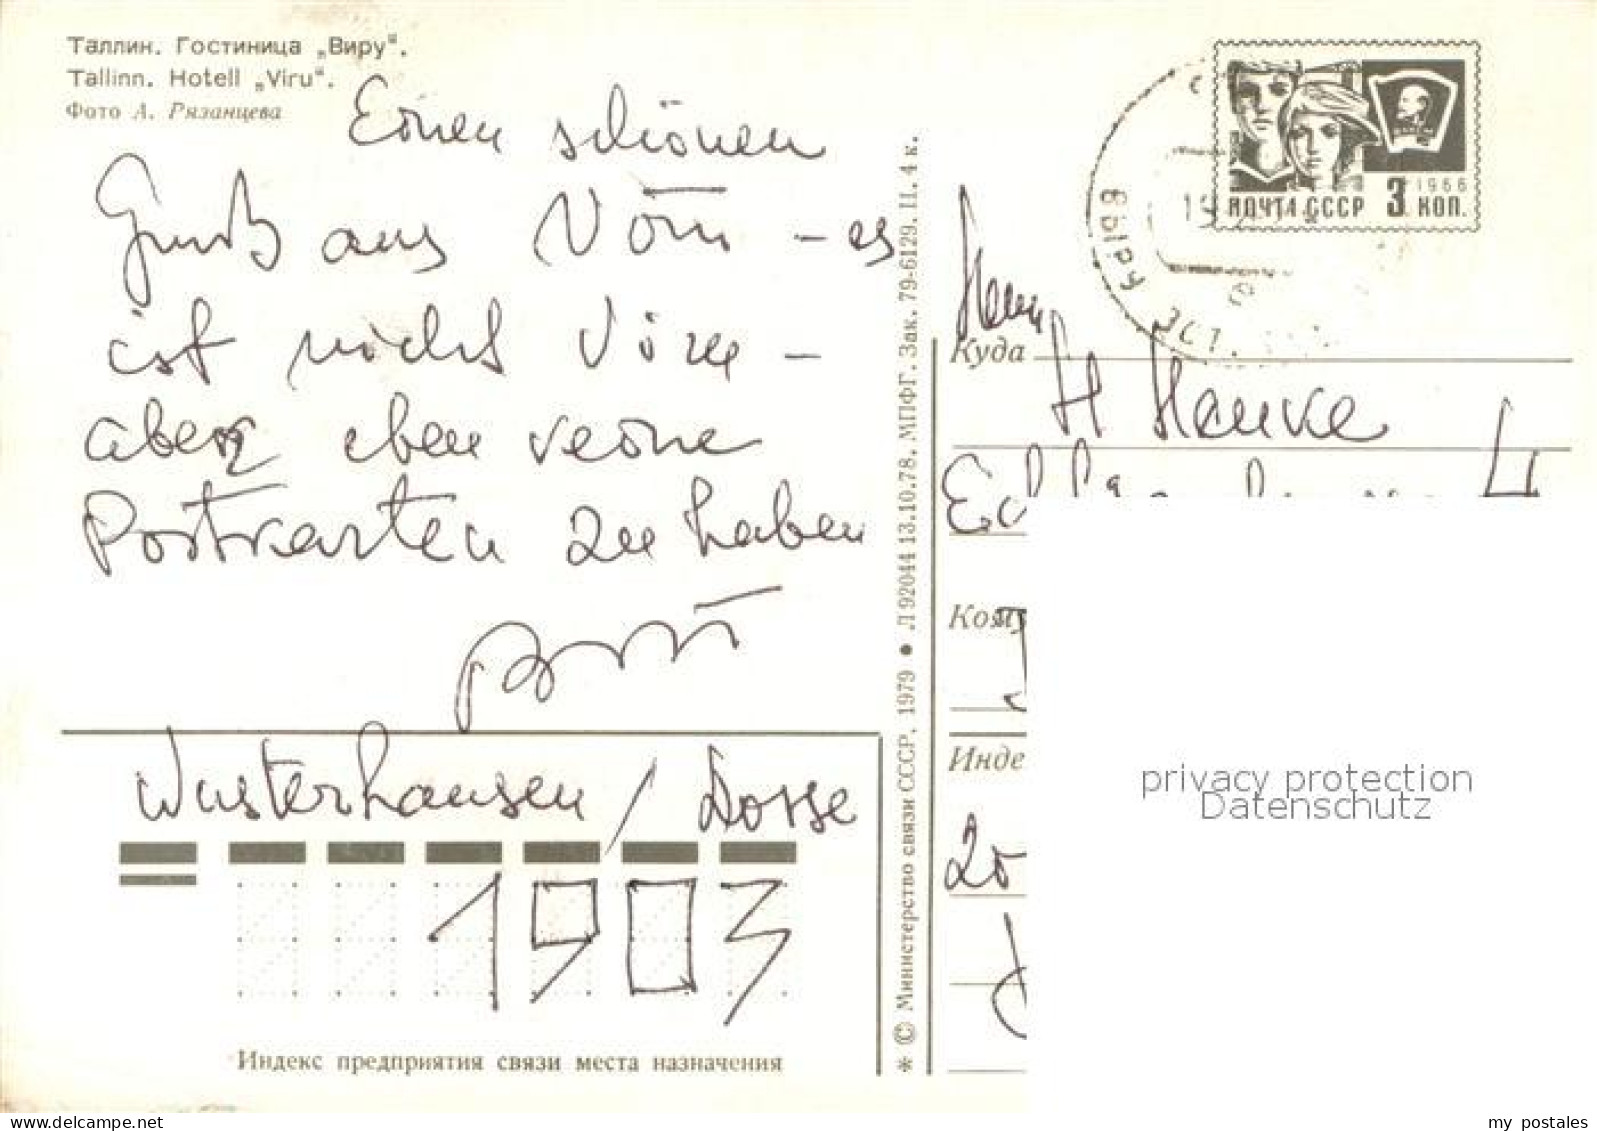 Таллин. Гостиница „Виру“.
Tallinn. Hotell „Viru“.
Фото А. Рязанцева
Einen schönen
Gruß aus Võru - es
ist nicht Viru -
aber eben keine
Postkarten zu haben
Wusterhausen / Dosse
1903
Индекс предприятия связи места назначения
* © Министерство связи СССР, 1979 • Л 92044 13.10.78. МПФГ. Зак. 79-6129. Ц. 4 к.
1966
ПОЧТА СССР 3 КОП.
ВЫРУ
ЭСТ.
Куда
Herrn
H Henke
Кому
Инде
privacy protection
Datenschutz
my postales